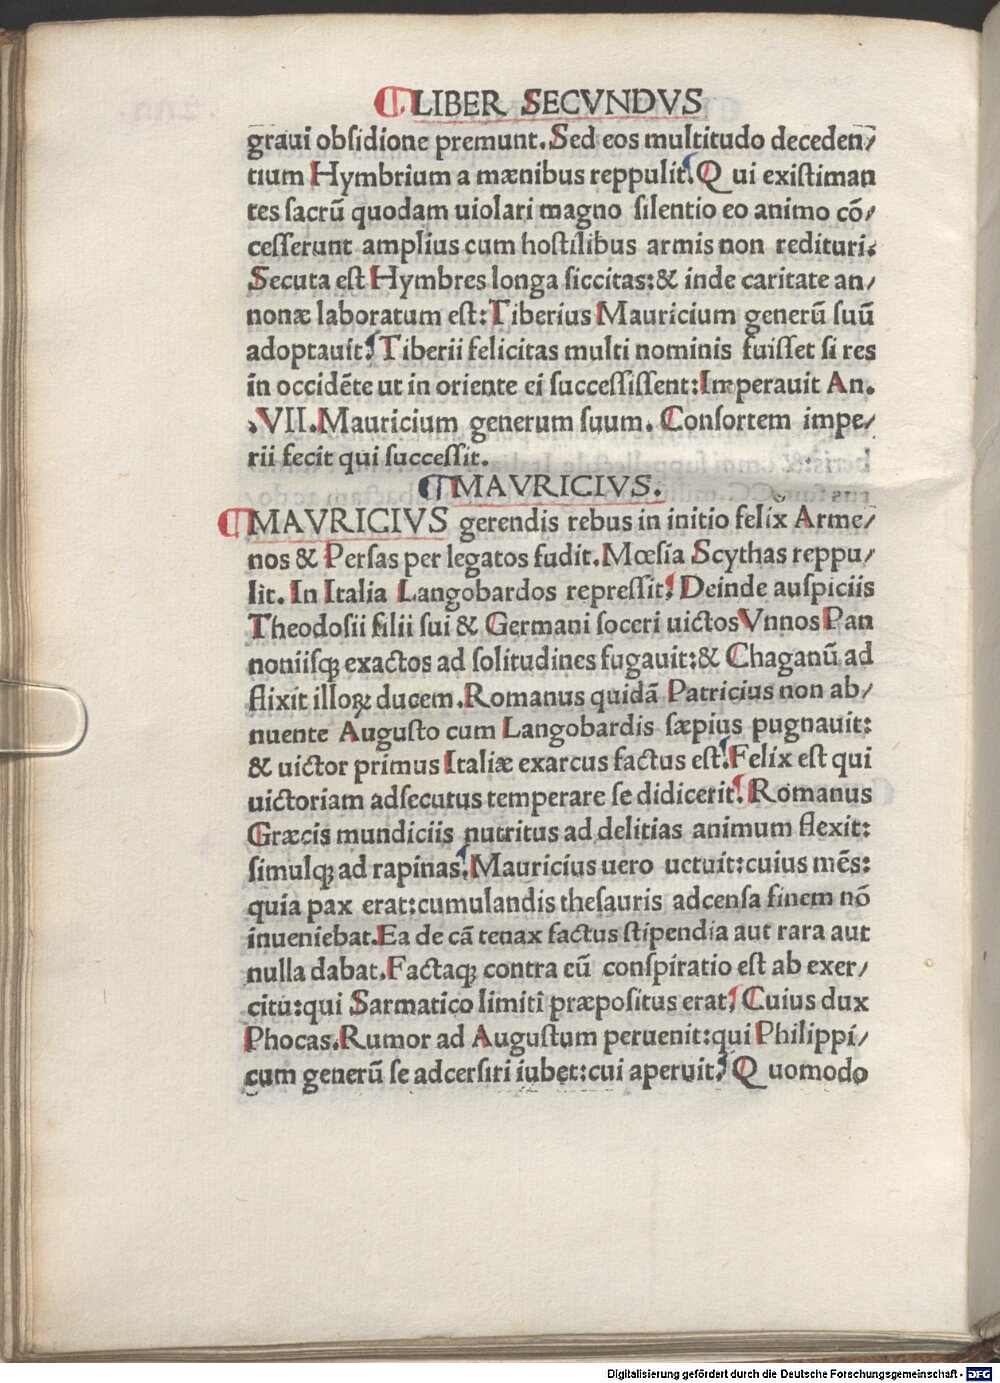 ¶LIBER SECVNDVS
graui obſidione premunt. Sed eos multitudo deceden/
tium Hymbrium a mænibus reppulit. Q ui exiſtiman
tes ſacrū quodam uiolari magno ſilentio eo animo cō/
ceſſerunt amplius cum hoſtilibus armis non redituri.
Secuta eſt Hymbres longa ſiccitas: & inde caritate an/
nonæ laboratum eſt: Tiberius Mauricium generū ſuū
adoptauit. Tiberii felicitas multi nominis fuiſſet ſi res
in occidēte ut in oriente ei ſucceſſiſſent: Imperauit An.
.VII. Mauricium generum ſuum. Conſortem impe/
rii fecit qui ſucceſſit.
¶MAVRICIVS.
¶MAVRICIVS gerendis rebus in initio felix Arme/
nos & Perſas per legatos fudit. Mœſia Scythas reppu/
lit. In Italia Langobardos repreſſit. Deinde auſpiciis
Theodoſii filii ſui & Germani ſoceri uictos Vnnos Pan
noniiſqꝫ exactos ad ſolitudines fugauit: & Chaganū ad
flixit illoꝝ ducem. Romanus quidā Patricius non ab/
nuente Auguſto cum Langobardis ſæpius pugnauit:
& uictor primus Italiæ exarcus factus eſt. Felix eſt qui
uictoriam adſecutus temperare ſe didicerit. Romanus
Græcis mundiciis nutritus ad delitias animum flexit:
ſimulqꝫ ad rapinas. Mauricius uero uetuit: cuius mēs:
quia pax erat: cumulandis theſauris adcenſa finem nō
inueniebat. Ea de cā tenax factus ſtipendia aut rara aut
nulla dabat. Factaqꝫ contra eū conſpiratio eſt ab exer/
citu: qui Sarmatico limiti præpoſitus erat. Cuius dux
Phocas. Rumor ad Auguſtum peruenit: qui Philippi/
cum generū ſe adcerſiri iubet: cui aperuit. Q uomodo
Digitalisierung gefördert durch die Deutsche Forschungsgemeinschaft - DFG